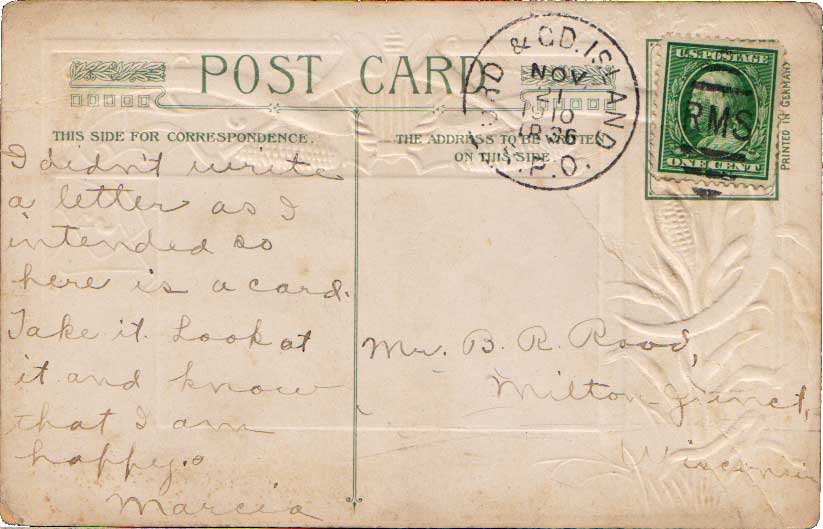 POST CARD
THIS SIDE FOR CORRESPONDENCE.
THE ADDRESS TO BE WRITTEN
ON THIS SIDE
& GD. ISLAND
NOV
21
1910
R.P.O.
U.S. POSTAGE
RMS
ONE CENT
PRINTED IN GERMANY
I didn't write
a letter as I
intended so
here is a card.
Take it. Look at
it and know
that I am
happy.
Marcia
Mr. B. R. Rood,
Milton Junct,
Wisconsin